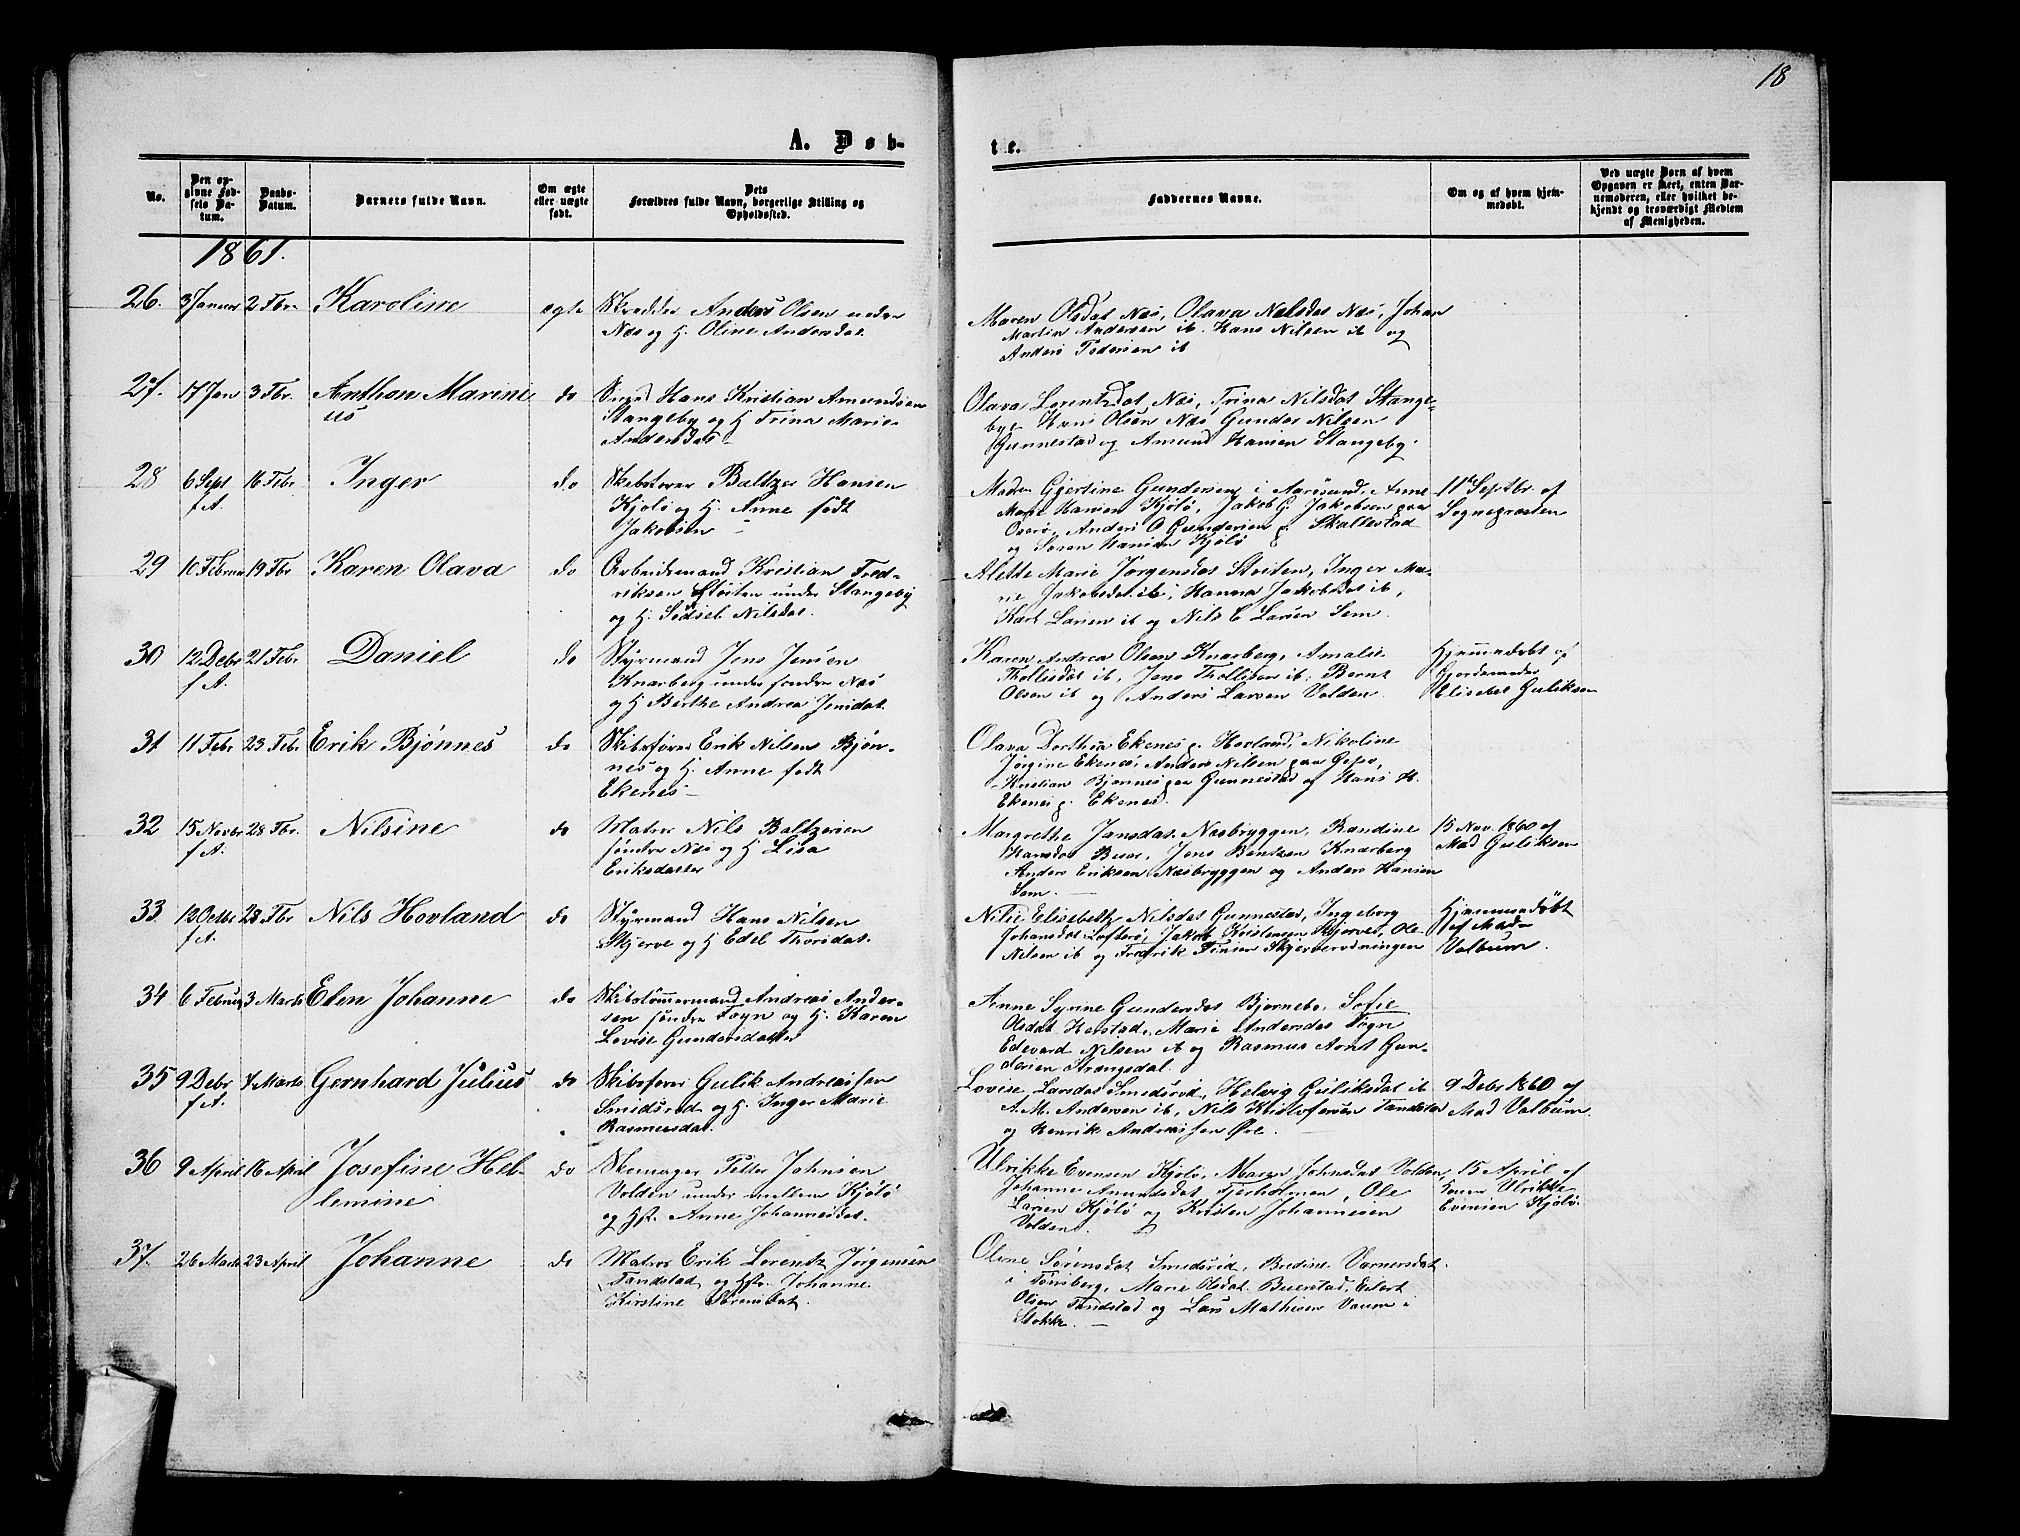 18
A. Døb-
te.
No.
Den op-
givne Fød-
sels Da-
tum.
Daabs-
Datum.
Barnets fulde Navn.
Om ægte
eller uægte
født.
Dets
Forældres fulde Navn, borgerlige Stilling og
Opholdssted.
Faddernes Navne.
Om og af hvem hjem-
medøbt.
Ved uægte Børn af hvem
Opgaven er skeet, enten Bar-
nemoderen, eller hvilket be-
kjendt og troværdigt Medlem
af Menigheden.
1861.
26. 3 Januar 2 Fbr. Karoline ægte Skrædder Anders Olsen nedre
Næs og H. Oline Andersdat.
Maren Olsdat Næs, Olava Nelsdat Næs, Johan
Martin Andersen ib. Hans Nilsen ib og
Anders Pedersen ib
27. 17 Jan 3 Fbr. Anthon Marini
us
do Hans Kristian Amundsen
Stangeby og H Trina Marie
Andersdat
Olava Lorentzdat Næs, Trina Nilsdat Stange-
bye Hans Olsen Næs Gunder Nilsen
Gunnestad og Amund Hansen Stangeby.
28 6 Sept
f A. 16 Febr Inger do Skibsfører Baltzer Hansen
Kjølø og H. Anne født
Jakobsen
Madm Gjertine Gundersen i Aarøsund, Anne
Marie Hansen Kjølø, Jakob G. Jakobsen paa
Oserø, Anders O Gundersen p. Skallestad
og Søren Hansen Kjølø
11te Septbr. af
Sognepræsten
29 10 Februar 19 Fbr Karen Olava do Arbeidsmand Kristian Fred-
riksen Støiten under Stangeby
og H. Sidsel Nilsdat.
Alette Marie Jørgensdat Støiten, Inger Ma-
rie Jakobsdat ib, Hanna Jakobsdat ib,
Karl Larsen ib og Nils C Larsen Sem.
30 12 Debr
f A. 21 Febr Daniel do Styrmand Jens Jensen
Knarberg under søndre Næs
og H Berthe Andrea Jensdat.
Karen Andrea Olsen Knarberg, Amalie
Thollisdat ib, Jens Thollisen ib. Bernt
Olsen ib og Anders Larsen Volden.
Hjemmedøbt af
Jordemoder
Elisabet Guliksen
31 11 Febr 23 Febr Erik Bjønnes do Skibsfører Erik Nilsen Bjøn-
nes og H. Anne født
Ekenes
Olava Dorthea Ekenes p. Hovland, Nikoline
Jørgine Ekenes, Anders Nilsen paa Gipø,
Kristian Bjønnes paa Gunnestad og Hans H.
Ekenes p. Ekenes.
32 15 Novbr
f A. 28 Fbr. Nilsine do Matros Nils Baltzersen
søndre Næs og H Lisa
Eriksdatter
Margrethe Jansdat. Næsbryggen, Randine
Hansdat Buar, Jens Bentzen Knarberg
Anders Eriksen Næsbryggen og Anders Hansen
Sem.
15 Nov. 1860 af
Mad Guliksen
33. 12 Octbr
f A. 28 Fbr Nils Hovland do Styrmand Hans Nilsen
Skjerve og H Edel Thorsdat.
Nilie Elisabeth Nilsdat Gunnestad, Ingeborg
Johansdat Lofterø, Jakob Kristensen Skjerve, Ole
Nilsen ib og Fredrik Tinsen Skjerverødningen
Hjemmedøbt
af Mad
Valbum.
34 6 Februar 3 Marts Elen Johanne do Skibstømmermand Andreas Ander-
sen søndre Føyn og H. Karen
Lovise Gundersdatter
Anne Syrine Gundersdat Bjørnebo, Sofie
Olsdat Harstad, Marie Andersdat Føgn
Edevard Nilsen ib og Rasmus Arnt Gun-
dersen Strengsdal.
35 9 Debr
f A. 4 Marts Gernhard Julius do Skibsfører Gulik Andreassen
Smidsrød og H. Inger Marie
Rasmusdat.
Lovise Larsdat Smidsrød, Helvig Guliksdat ib
A. M. Andersen ib, Nils Kristofersen Tandstad
og Henrik Andreassen Øre.
9 Debr 1860 af
Mad Valbum
36 9 April 16 April Josefine Hel-
lemine
do Skomager Petter Johnsen
Volden under mellem Kjølø
og Hst. Anne Johannesdat.
Ulrikke Evensen Kjølø, Maren Johnsdat Volden,
Johanne Amundsdat Fjerholmen, Ole
Larsen Kjølø og Kristen Johannesen
Volden.
15 April af
Konen Ulrikke
Evensen Kjølø.
37. 26 Marts 23 April Johanne do Matros Erik Lorentz Jørgensen
Tandstad og Hst. Johanne
Kirstine Sørensdat.
Oline Sørensdat Smidsrød, Bredine Varnersdat.
i Tønsberg, Marie Olsdat. Buerstad, Eilert
Olsen Tandstad og Lars Mathisen Vaum i
Stokke.